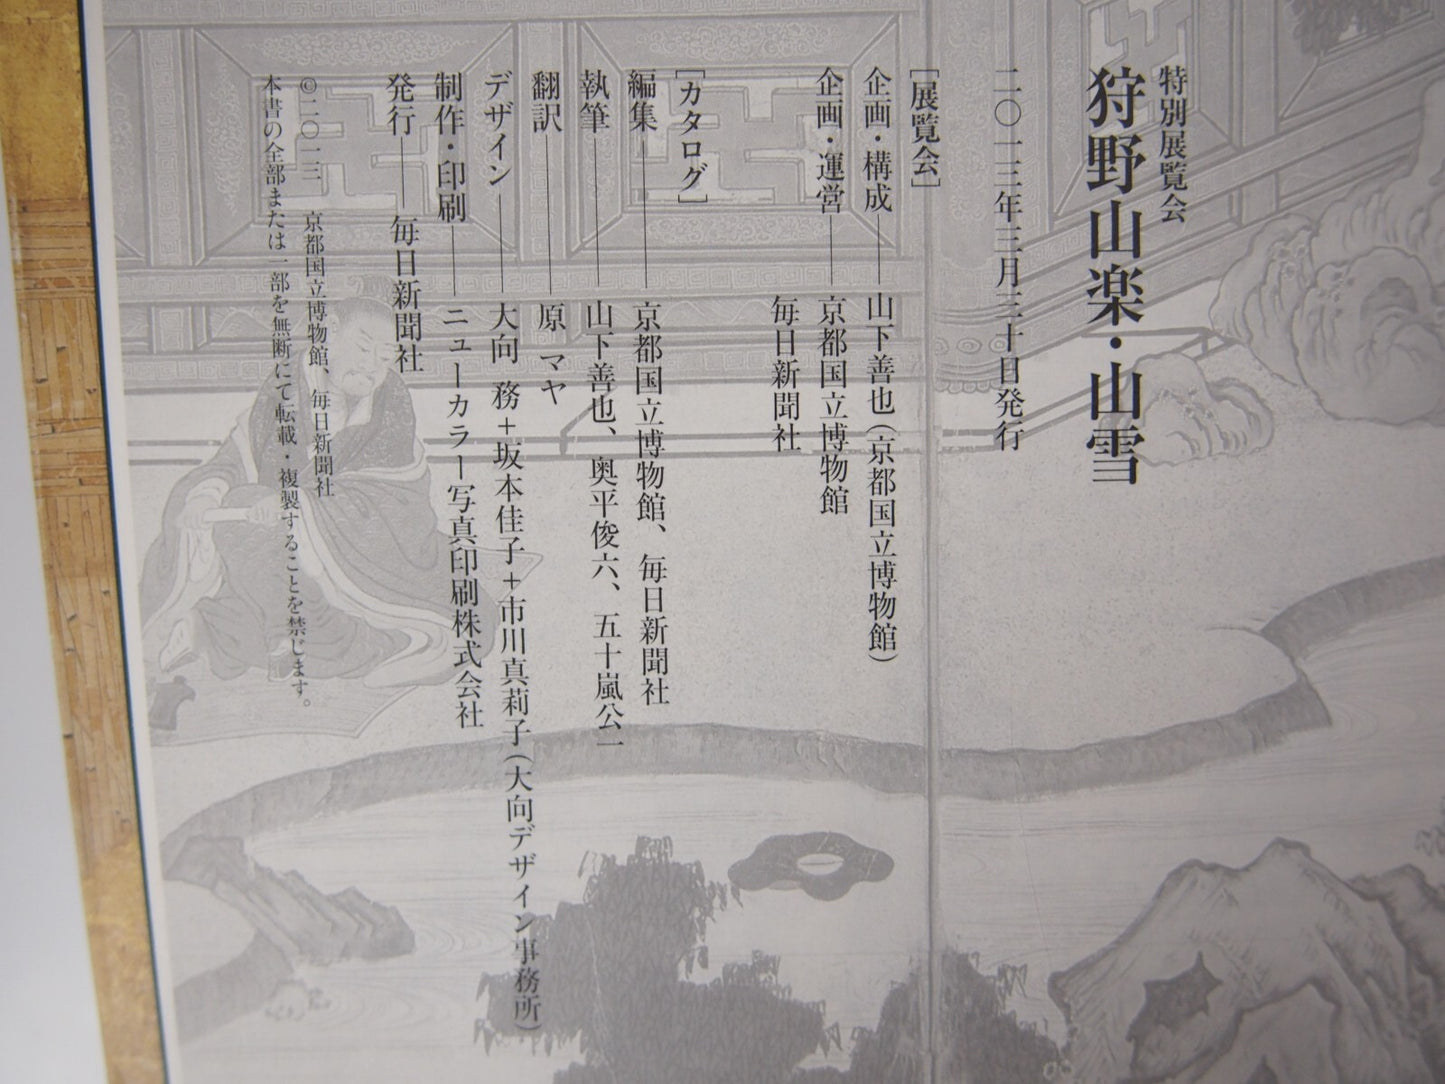 特別展覧会
狩野山楽・山雪
二〇一三年三月三十日発行
[展覧会]
企画・構成──山下善也(京都国立博物館)
企画・運営──京都国立博物館
毎日新聞社
[カタログ]
編集────京都国立博物館、毎日新聞社
執筆────山下善也、奥平俊六、五十嵐公一
翻訳────原 マヤ
デザイン───大向 務+坂本佳子+市川真莉子(大向デザイン事務所)
制作・印刷──ニューカラー写真印刷株式会社
発行───毎日新聞社
©二〇一三 京都国立博物館、毎日新聞社
本書の全部または一部を無断にて転載・複製することを禁じます。